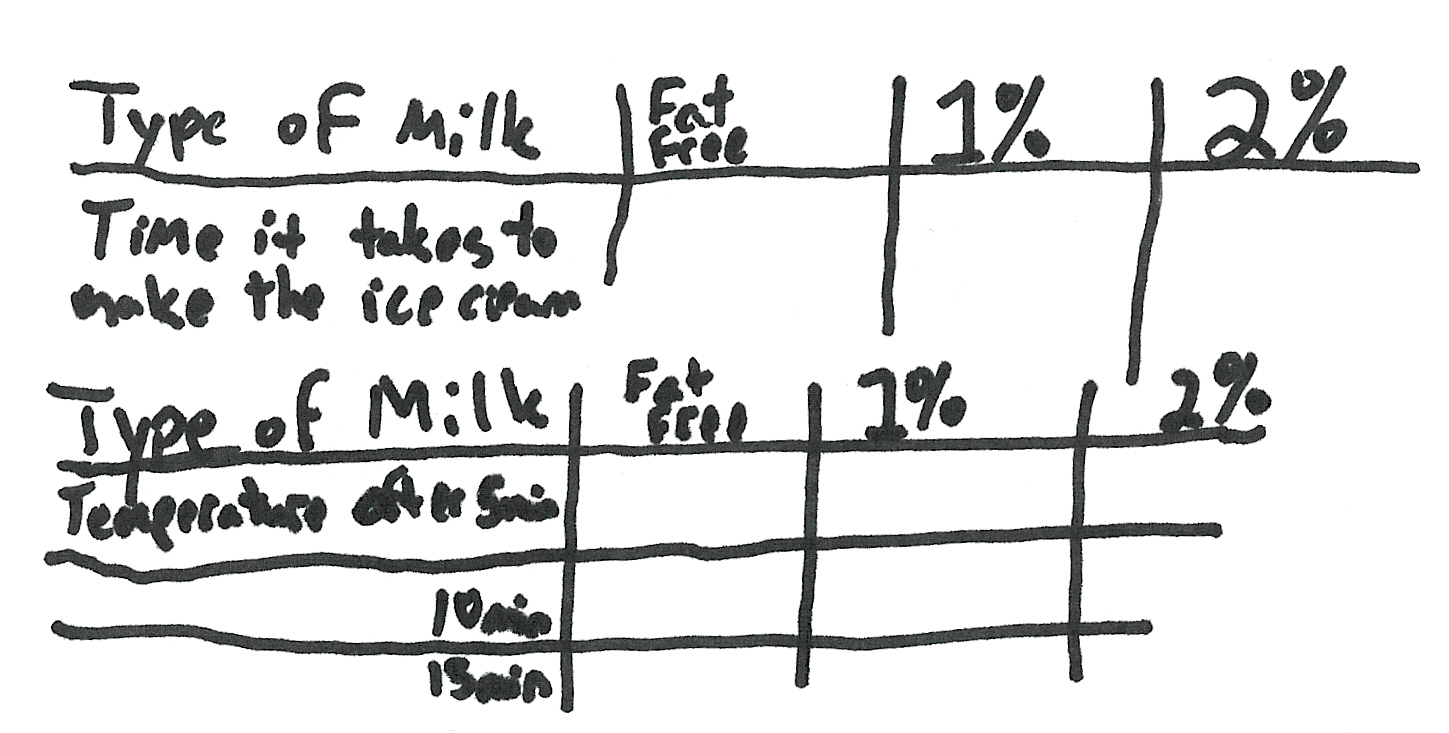 Type of Milk Fat Free 1% 2%
Time it takes to
make the ice cream
Type of Milk Fat Free 1% 2%
Temperature after 5min
10min
15min